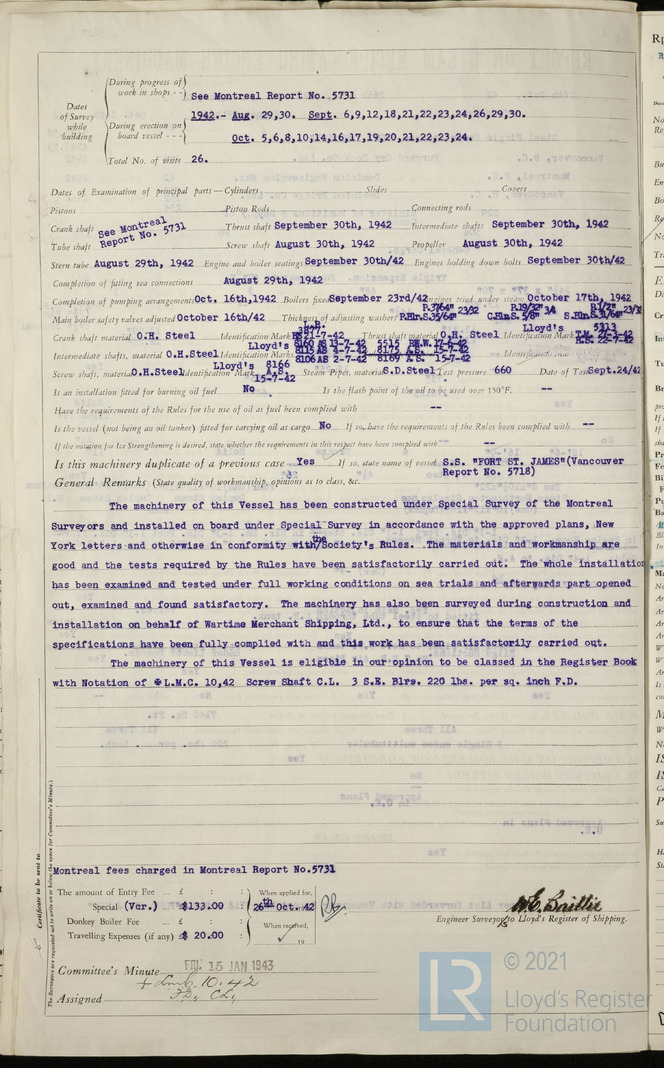 Dates of Survey while building
During progress of work in shops - - See Montreal Report No. 5731
1942.- Aug. 29,30. Sept. 6,9,12,18,21,22,23,24,26,29,30.
During erection on board vessel - - - Oct. 5,6,8,10,14,16,17,19,20,21,22,23,24.
Total No. of visits 26.
Dates of Examination of principal parts—Cylinders Slides Covers
Pistons Piston Rods Connecting rods
Crank shaft See Montreal Report No. 5731 Thrust shaft September 30th, 1942 Intermediate shafts September 30th, 1942
Tube shaft Screw shaft August 30th, 1942 Propeller August 30th, 1942
Stern tube August 29th, 1942 Engine and boiler seatings September 30th/42 Engines holding down bolts September 30th/42
Completion of fitting sea connections August 29th, 1942
Completion of pumping arrangements Oct. 16th,1942 Boilers fixed September 23rd/42 Engines tried under steam October 17th, 1942
Main boiler safety valves adjusted October 16th/42 Thickness of adjusting washers
Crank shaft material O.H. Steel Identification Mark 21-7-42 Thrust shaft material O.H. Steel Identification Mark Lloyd's 5313
Intermediate shafts, material O.H.Steel Identification Marks Lloyd's 8160 AS 13-7-42 5515 17-6-42
8115 AS 8-7-42 8172 A.S. 15-7-42
8106 AS 2-7-42 8169 A.S. 15-7-42
Screw shaft, material O.H.Steel Identification Mark Lloyd's 8166 A.S. 15-7-42 Steam Pipes, material S.D.Steel Test pressure 660 Date of Test Sept.24/42
Is an installation fitted for burning oil fuel No Is the flash point of the oil to be used over 150°F. --
Have the requirements of the Rules for the use of oil as fuel been complied with --
Is the vessel (not being an oil tanker) fitted for carrying oil as cargo. No If so, have the requirements of the Rules been complied with --
If the notation for Ice Strengthening is desired, state whether the requirements in this respect have been complied with --
Is this machinery duplicate of a previous case Yes If so, state name of vessel S.S. "FORT ST. JAMES"(Vancouver
Report No. 5718)
General Remarks (State quality of workmanship, opinions as to class, &c.
The machinery of this Vessel has been constructed under Special Survey of the Montreal
Surveyors and installed on board under Special Survey in accordance with the approved plans, New
York letters and otherwise in conformity with/the Society's Rules. The materials and workmanship are
good and the tests required by the Rules have been satisfactorily carried out. The whole installation
has been examined and tested under full working conditions on sea trials and afterwards part opened
out, examined and found satisfactory. The machinery has also been surveyed during construction and
installation on behalf of Wartime Merchant Shipping, Ltd., to ensure that the terms of the
specifications have been fully complied with and this work has been satisfactorily carried out.
The machinery of this Vessel is eligible in our opinion to be classed in the Register Book
with Notation of ✠ L.M.C. 10,42 Screw Shaft C.L. 3 S.E. Blrs. 220 lbs. per sq. inch F.D.
Certificate to be sent to
The Surveyors are requested not to write on or below the space for Committee's Minute.
Montreal fees charged in Montreal Report No.5731
The amount of Entry Fee ... £ : : When applied for,
Special (Vcr.) $133.00 26th Oct. 42
Donkey Boiler Fee ... £ : : When received,
Travelling Expenses (if any) $ 20.00 19
W.E. Baillie
Engineer Surveyor to Lloyd's Register of Shipping.
Committee's Minute FRI. 15 JAN 1943
Assigned + Lmb 10.42
FD, CL,
LR © 2021
Lloyd's Register
Foundation